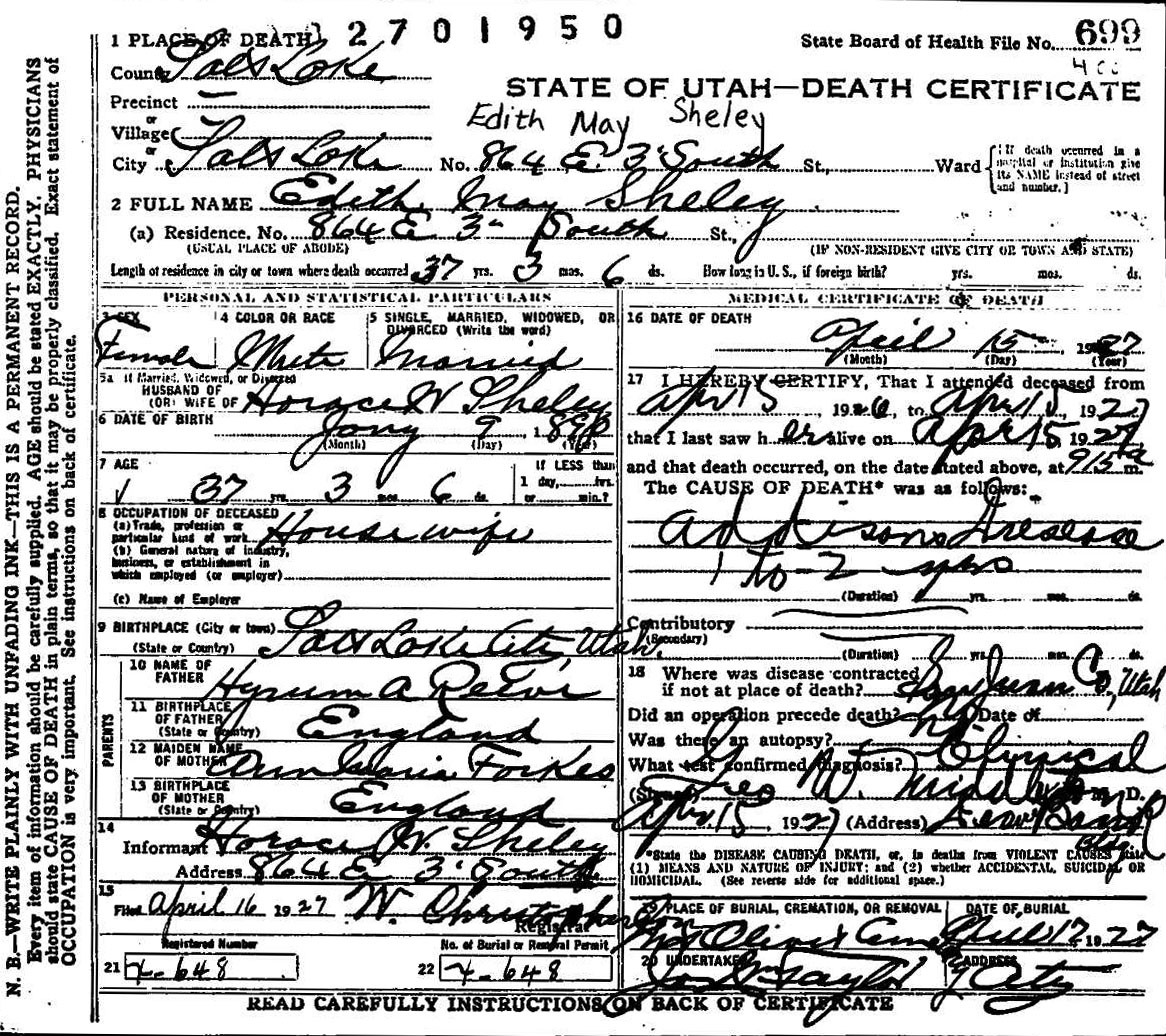 2701950
1 PLACE OF DEATH
State Board of Health File No. 699
County Salt Lake
400
STATE OF UTAH—DEATH CERTIFICATE
Precinct
or
Village
Edith May Sheley
or
City Salt Lake No. 864 E. 3 South St., Ward
{If death occurred in a hospital or institution give its NAME instead of street and number.}
2 FULL NAME Edith May Sheley
(a) Residence. No. 864 E 3 South St.,
(USUAL PLACE OF ABODE) (IF NON-RESIDENT GIVE CITY OR TOWN AND STATE)
Length of residence in city or town where death occurred 37 yrs. 3 mos. 6 ds. How long in U. S., if foreign birth? yrs. mos. ds.
PERSONAL AND STATISTICAL PARTICULARS
3 SEX
Female
4 COLOR OR RACE
White
5 SINGLE, MARRIED, WIDOWED, OR DIVORCED (Write the word)
Married
5a If Married, Widowed, or Divorced
HUSBAND OF
(OR) WIFE OF Horace W Sheley
6 DATE OF BIRTH Jany 9 1890
(Month) (Day) (Year)
7 AGE
37 yrs. 3 mos. 6 ds.
If LESS than
1 day, hrs.
or min.?
8 OCCUPATION OF DECEASED
(a) Trade, profession or
particular kind of work House wife
(b) General nature of industry,
business, or establishment in
which employed (or employer)
(c) Name of Employer
9 BIRTHPLACE (City or town) Salt Lake City Utah
(State or Country)
PARENTS
10 NAME OF
FATHER Hyrum A
11 BIRTHPLACE
OF FATHER England
(State or Country)
12 MAIDEN NAME
OF MOTHER Ann Maria
13 BIRTHPLACE
OF MOTHER England
(State or Country)
14
Informant Horace W. Sheley
Address 864 E 3 South
15
Filed April 16 1927 W.
Registrar
Registered Number
21 648
No. of Burial or Removal Permit
22 648
MEDICAL CERTIFICATE OF DEATH
16 DATE OF DEATH
April 15 1927
(Month) (Day) (Year)
17 I HEREBY CERTIFY, That I attended deceased from
Apr 15, 1926, to Apr 15, 1927
that I last saw her alive on Apr 15, 1927
and that death occurred, on the date stated above, at 915 a m.
The CAUSE OF DEATH* was as follows:
Addisons Disease
1 to 2 yrs
(Duration) yrs. mos. ds.
Contributory
(Secondary)
(Duration) yrs. mos. ds.
18 Where was disease contracted
if not at place of death? San Juan Co, Utah
Did an operation precede death? No Date of
Was there an autopsy?
What test confirmed diagnosis? Clinical
(Signed) Leo W. M. D.
Apr. 15, 1927 (Address) Bank Bldg
*State the DISEASE CAUSING DEATH, or, in deaths from VIOLENT CAUSES state
(1) MEANS AND NATURE OF INJURY; and (2) whether ACCIDENTAL, SUICIDAL OR
HOMICIDAL. (See reverse side for additional space.)
19 PLACE OF BURIAL, CREMATION, OR REMOVAL
Mt Olivet Cem
DATE OF BURIAL
April 17 1927
20 UNDERTAKER
Taylor
ADDRESS
City
READ CAREFULLY INSTRUCTIONS ON BACK OF CERTIFICATE
N. B.—WRITE PLAINLY WITH UNFADING INK—THIS IS A PERMANENT RECORD.
Every item of information should be carefully supplied. AGE should be stated EXACTLY. PHYSICIANS
should state CAUSE OF DEATH in plain terms, so that it may be properly classified. Exact statement of
OCCUPATION is very important. See instructions on back of certificate.